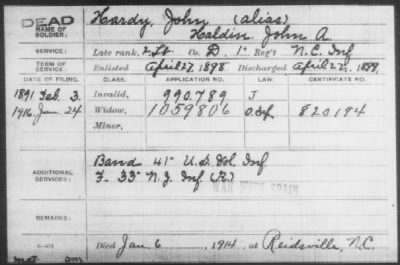 DEAD
NAME OF SOLDIER:
Hardy, John (alias)
Haldin John A.
SERVICE:
Late rank, 2 Lt. Co. D, 1" Reg't N.C. Inf
TERM OF SERVICE:
Enlisted April 27, 1898 Discharged April 22, 1899
DATE OF FILING. CLASS. APPLICATION NO. LAW. CERTIFICATE NO.
1891 Feb. 3. Invalid, 990.789 J
1916 Jan 24 Widow, 1059806 820194
Minor,
ADDITIONAL SERVICES:
Band 41" U.S. Vol. Inf
F. 33" N.J. Inf (R)
WAR WITH SPAIN
REMARKS:
Died Jan. 6, 1914, at Reidsville, N.C.